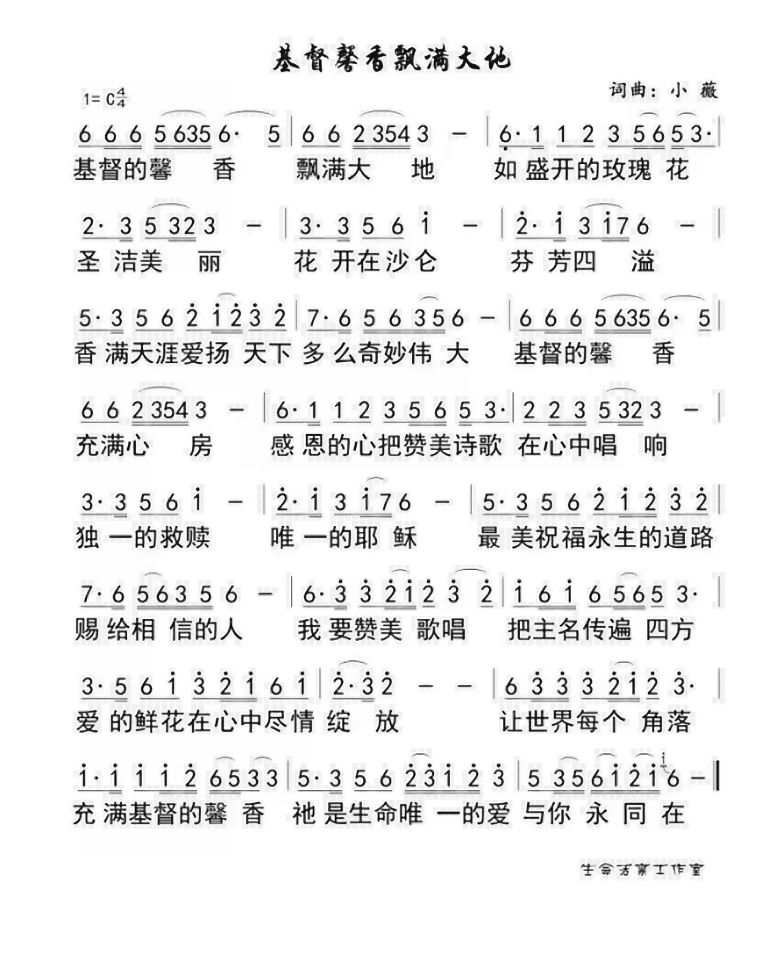 基督馨香飘满大地
1= C 4/4
词曲：小 薇
6 6 6 5 635 6· 5 | 6 6 2 354 3 － | 6· 1 1 2 3 5 6 5 3· |
基督的馨 香 飘满大 地 如 盛开的玫瑰 花
2· 3 5 32 3 － | 3· 3 5 6 i － | 2· i 3 i7 6 － |
圣 洁美 丽 花 开在沙仑 芬 芳四 溢
5· 3 5 6 2 i 2 3 2 | 7· 6 5 6 3 5 6 － | 6 6 6 5 635 6· 5
香 满天涯爱扬 天下 多 么奇妙伟 大 基督的馨 香
6 6 2 354 3 － | 6· 1 1 2 3 5 6 5 3· | 2 2 3 5 32 3 － |
充满心 房 感 恩的心把赞美诗歌 在心中唱 响
3· 3 5 6 i － | 2· i 3 i7 6 － | 5· 3 5 6 2 i 2 3 2 |
独 一的救赎 唯 一的耶 稣 最 美祝福永生的道路
7· 6 5 6 3 5 6 － | 6· 3 3 2 i 2 3 2 | i 6 i 6 5 6 5 3· |
赐 给相 信的人 我 要赞美 歌唱 把主名传遍 四方
3· 5 6 i 3 2 i 2 6 i | 2· 3 2 － － | 6 3 3 3 2 i 2 3· |
爱 的鲜花在心中尽情 绽 放 让世界每个 角落
i· i i i 2 6 5 3 3 | 5· 3 5 6 2 3 i 2 3 | 5 3 5 6 i 2 i i 6 － ‖
充 满基督的馨 香 祂 是生命唯 一的爱 与你 永 同 在
生命方舟工作室